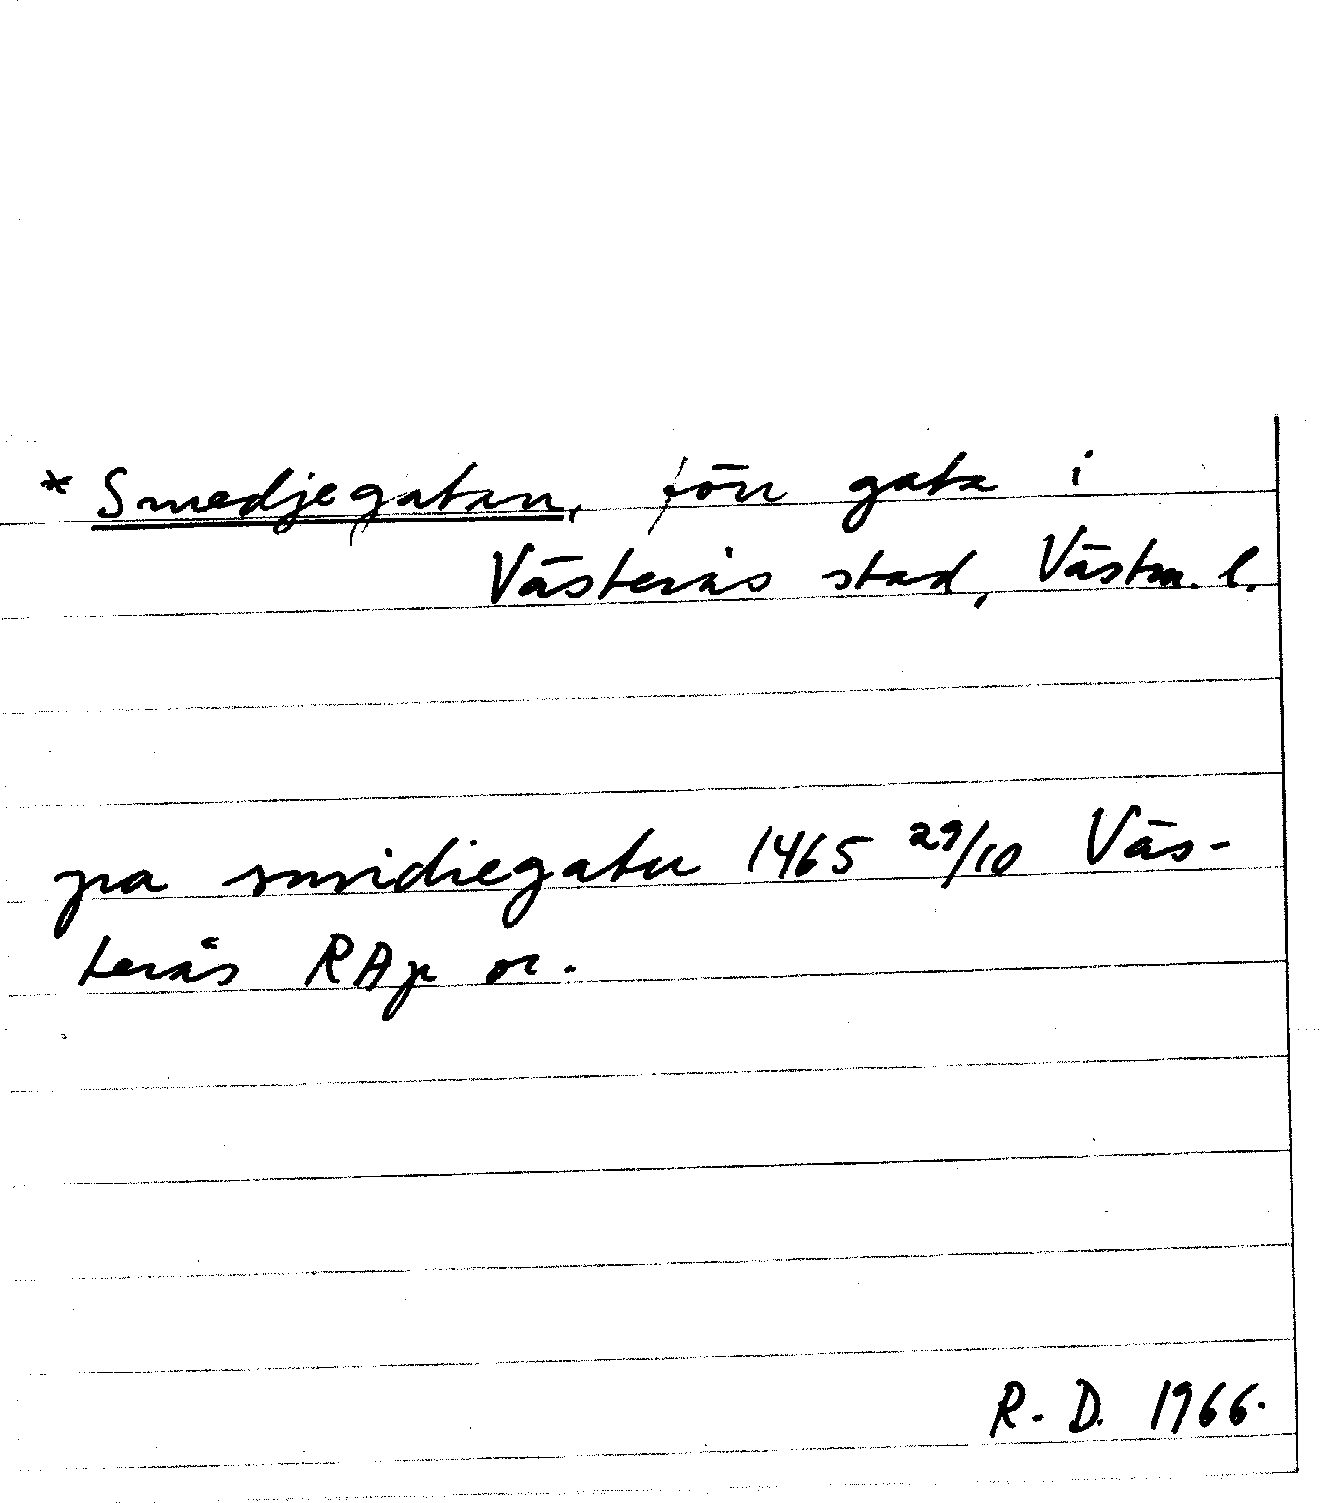 * Smedjegatan, förr gata i
Västerås stad, Västm. l.
pa smidiegatu 1465 29/10 Väs-
terås RAp or.
R. D. 1966.